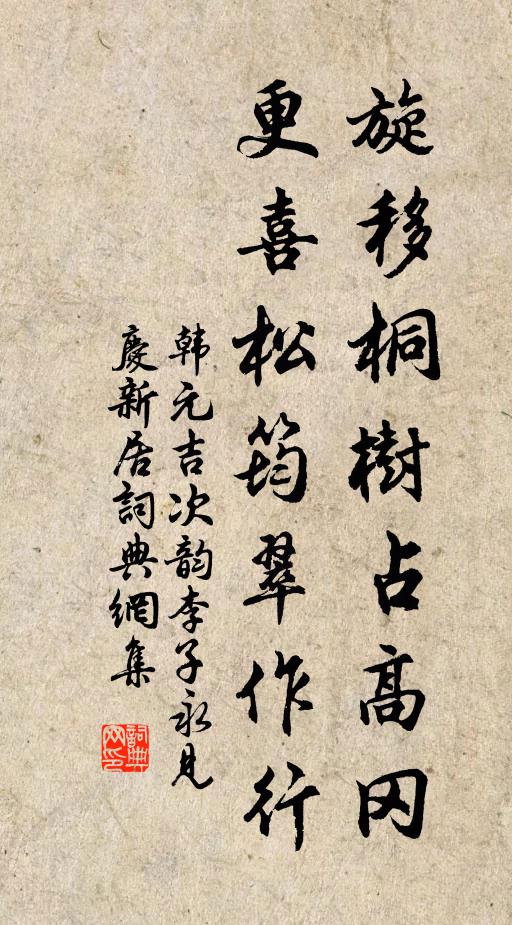 旋移桐樹占高冈
更喜松筠翠作行
韩元吉次韵李子永見
慶新居詞典網集
詞典网印